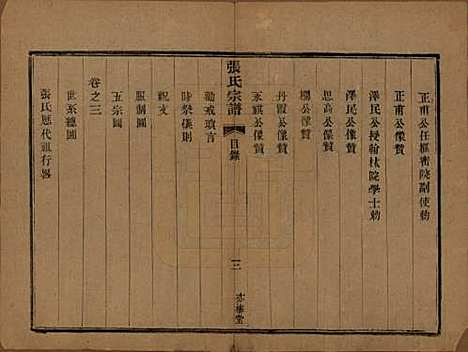 正甫公任樞密院副使勅
正甫公像贊
澤民公授翰林院學士勅
澤民公像贊
思高公像贊
櫚公像贊
丹霞公像贊
永祺公像贊
張氏宗譜
目錄
三
亦樂堂
勸戒瑣言
時祭儀則
祝文
服制圖
五宗圖
卷之三
世系總圖
張氏歷代祖行畧